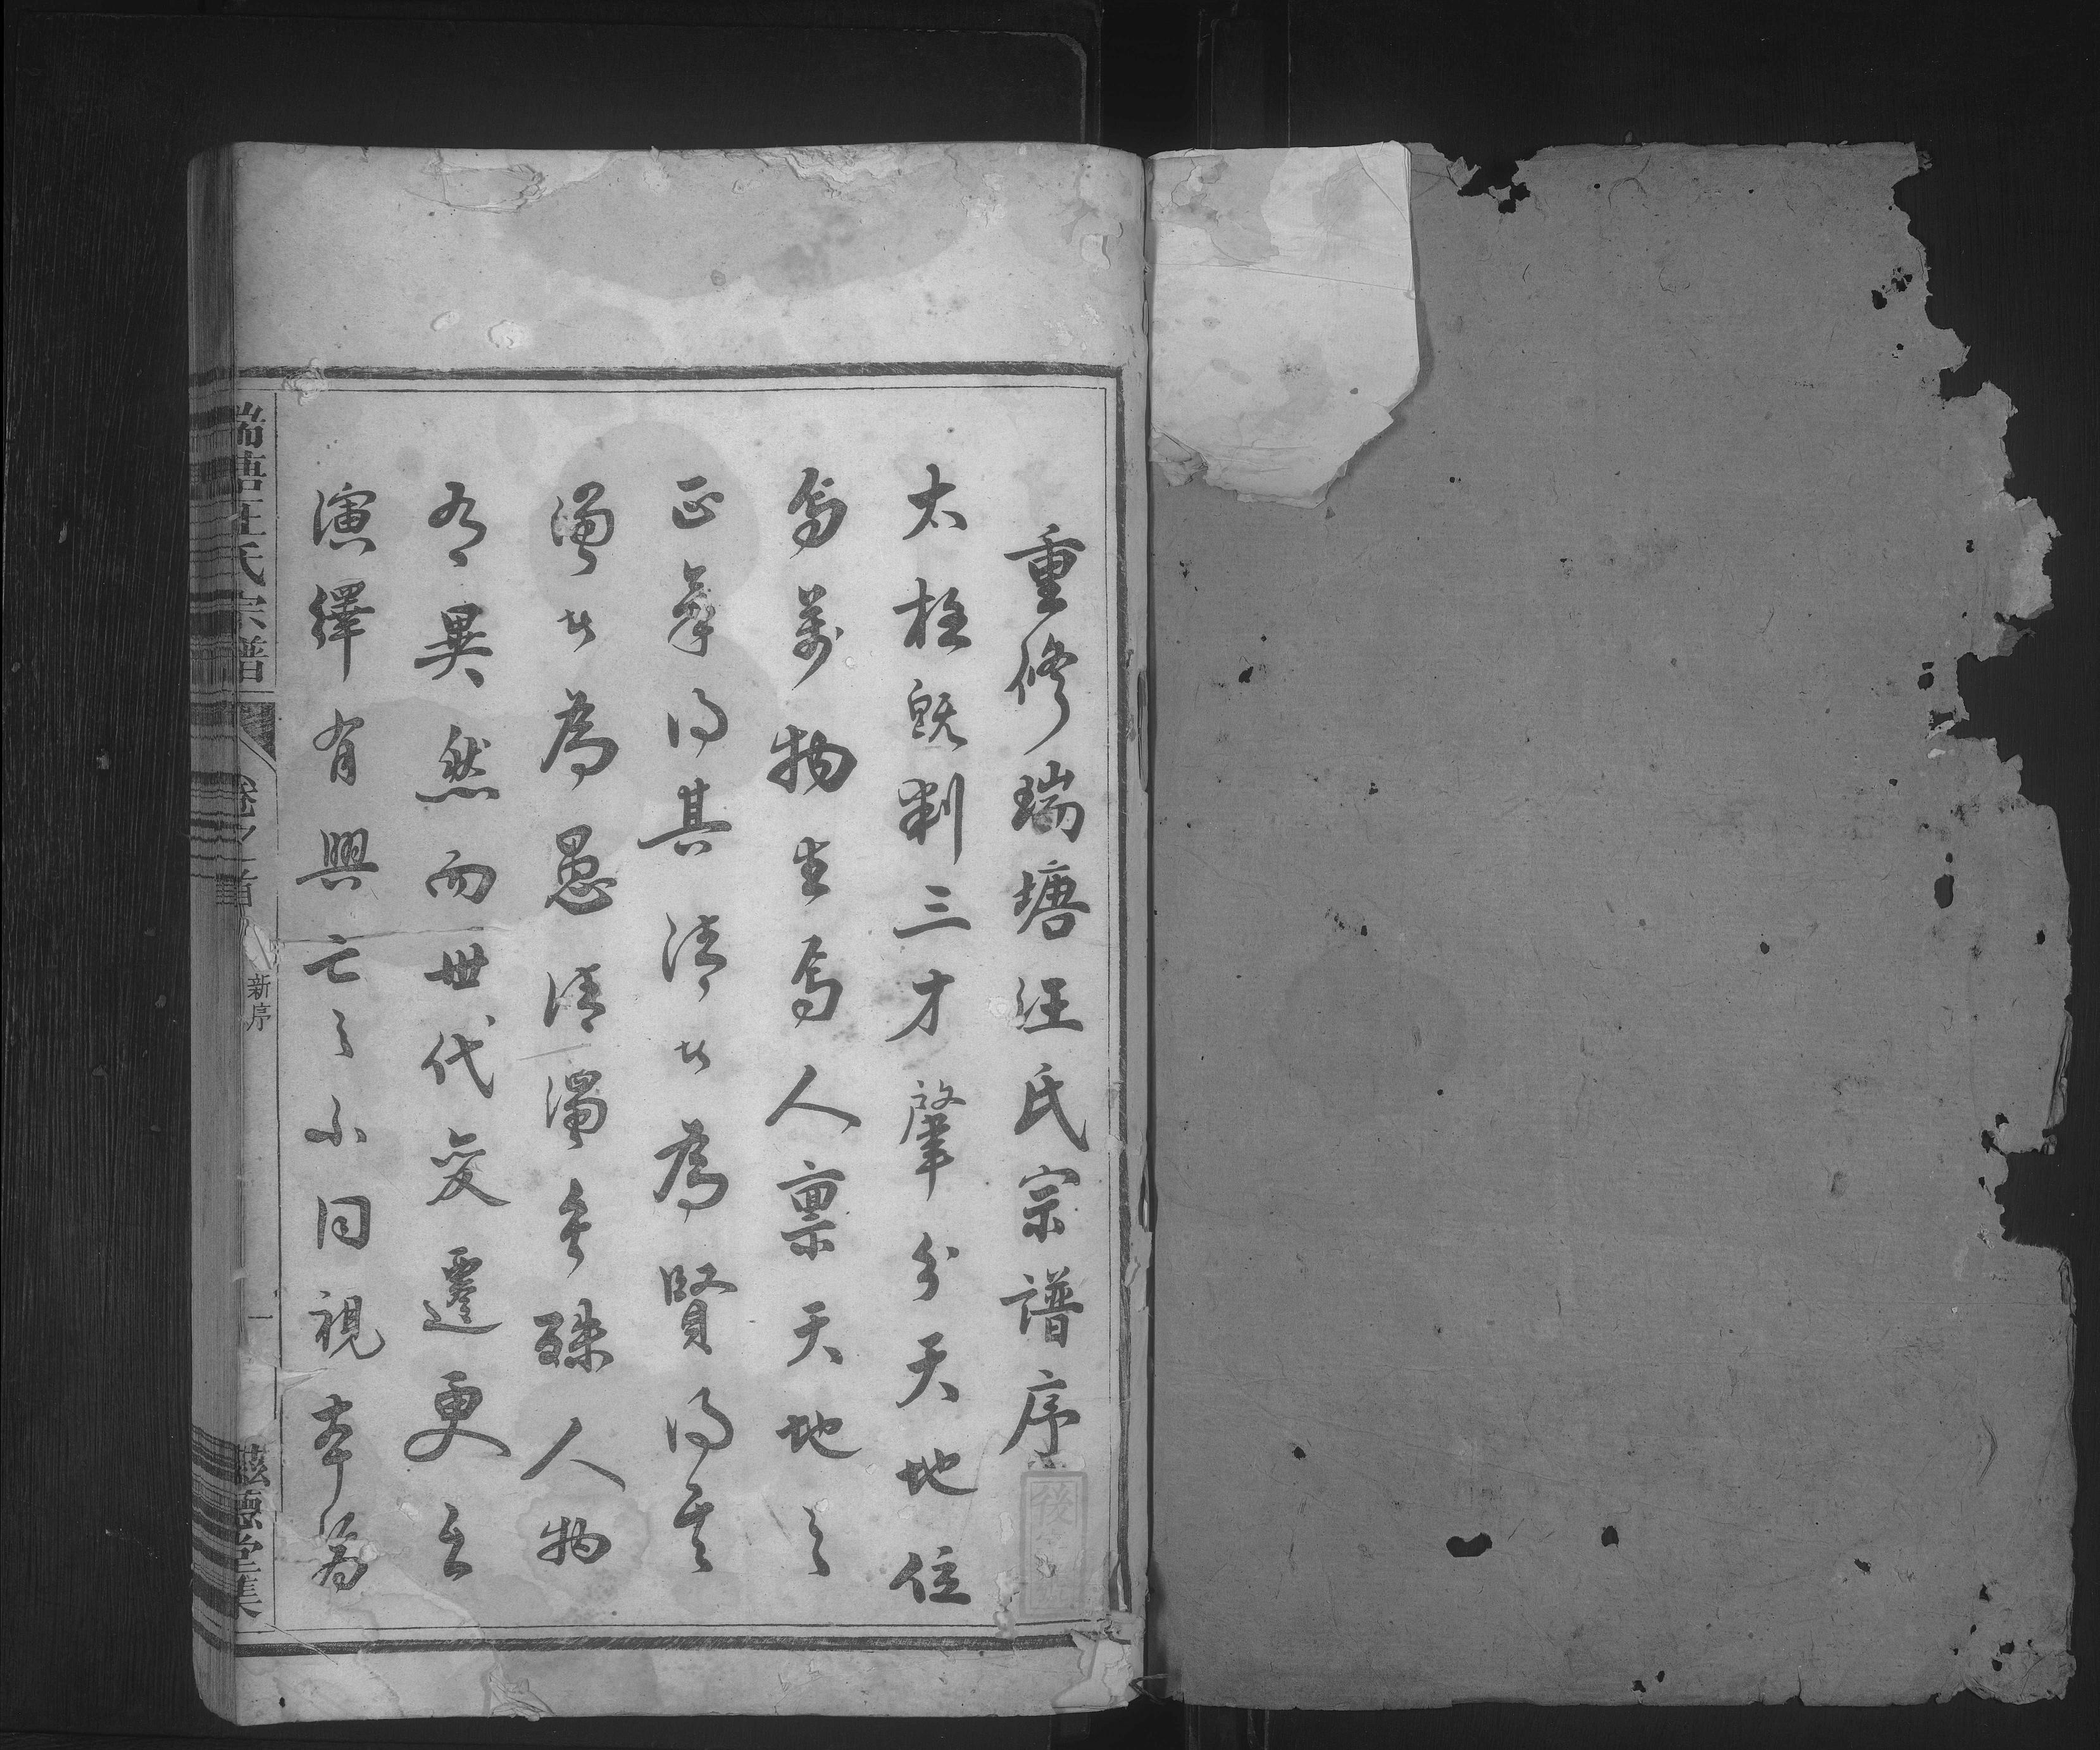 重修瑞塘汪氏宗譜序
太極既判三才肇分天地位
焉萬物生焉人禀天地之
正氣得其清者為賢得其
濁者為愚清濁無殊人物
有異然而世代變遷更互
演繹有興亡之不同視本為
瑞塘汪氏宗譜
卷之首
新序
一
德堂集